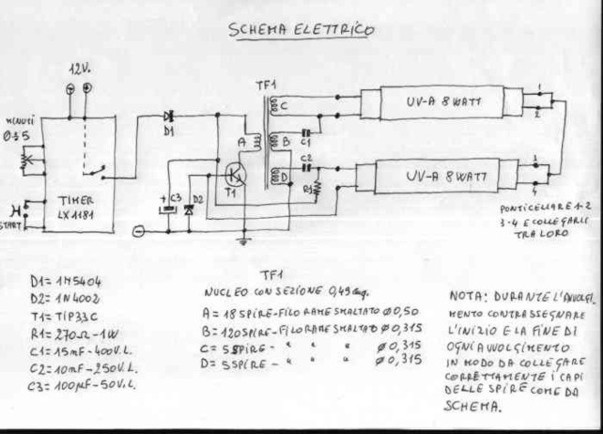 SCHEMA ELETTRICO
12V.
TF1
MINUTI
0÷5
D1
A
C
B
D
C1
C2
R1
T1
C3
D2
+
TIMER
LX1181
START
UV-A 8 WATT
1
2
UV-A 8 WATT
3
4
PONTICELLARE 1-2
3-4 E COLLEGARLI
TRA LORO
D1= 1N5404
D2= 1N4002
T1= TIP33C
R1= 270Ω-1W
C1= 15mF-400V.L.
C2= 10mF-250V.L.
C3= 100µF-50V.L.
TF1
NUCLEO CON SEZIONE 0,49 cmq.
A = 18 SPIRE-FILO RAME SMALTATO Ø 0,50
B = 120 SPIRE-FILO RAME SMALTATO Ø 0,315
C = 5 SPIRE - " " " Ø 0,315
D = 5 SPIRE - " " " Ø 0,315
NOTA: DURANTE L'AVVOLGI-
MENTO CONTRASSEGNARE
L'INIZIO E LA FINE DI
OGNI AVVOLGIMENTO
IN MODO DA COLLEGARE
CORRETTAMENTE I CAPI
DELLE SPIRE COME DA
SCHEMA.